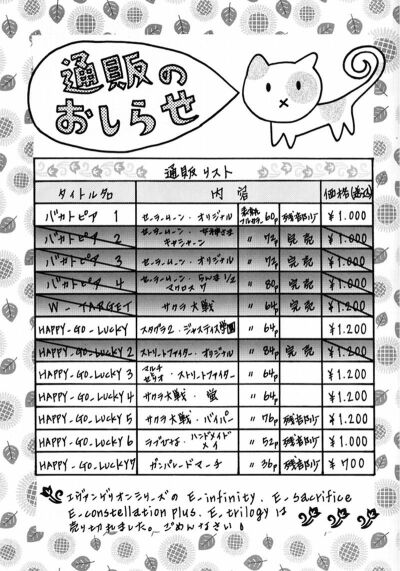 通販の
おしらせ
通販リスト
タイトル名 内容 価格(税込)
バカトピア 1 セーラームーン・オリジナル 表紙フルカラー 60p 残部少 ¥1.000
バカトピア 2 セーラームーン・女神さま キャシャーン 〃 72p 完売
バカトピア 3 セーラームーン・オリジナル 〃 72p 完売 ¥1.000
バカトピア 4 セーラームーン・らんま1/2 マクロス7 〃 80p 完売 ¥1.000
W-TARGET サクラ大戦 〃 64p 完売 ¥1.200
HAPPY-GO-LUCKY スタグラ2・ジャスティス学園 〃 64p ¥1.200
HAPPY-GO-LUCKY 2 ストリートファイター・オリジナル 〃 84p 完売 ¥1.200
HAPPY-GO-LUCKY 3 マルチ セリオ・ストリートファイター 〃 64p ¥1.200
HAPPY-GO-LUCKY 4 サクラ大戦・蛍 〃 64p ¥1.200
HAPPY-GO-LUCKY 5 サクラ大戦・バイパー 〃 76p 残部少 ¥1.200
HAPPY-GO-LUCKY 6 ラブひな・ハンドメイドメイ 〃 52p 残部少 ¥1.000
HAPPY-GO-LUCKY 7 ガンパレードマーチ 〃 36p 残部少 ¥700
エヴァンゲリオンシリーズの E-infinity. E-sacrifice
E-constellation plus. E-trilogy は
売り切れました。ごめんなさい!